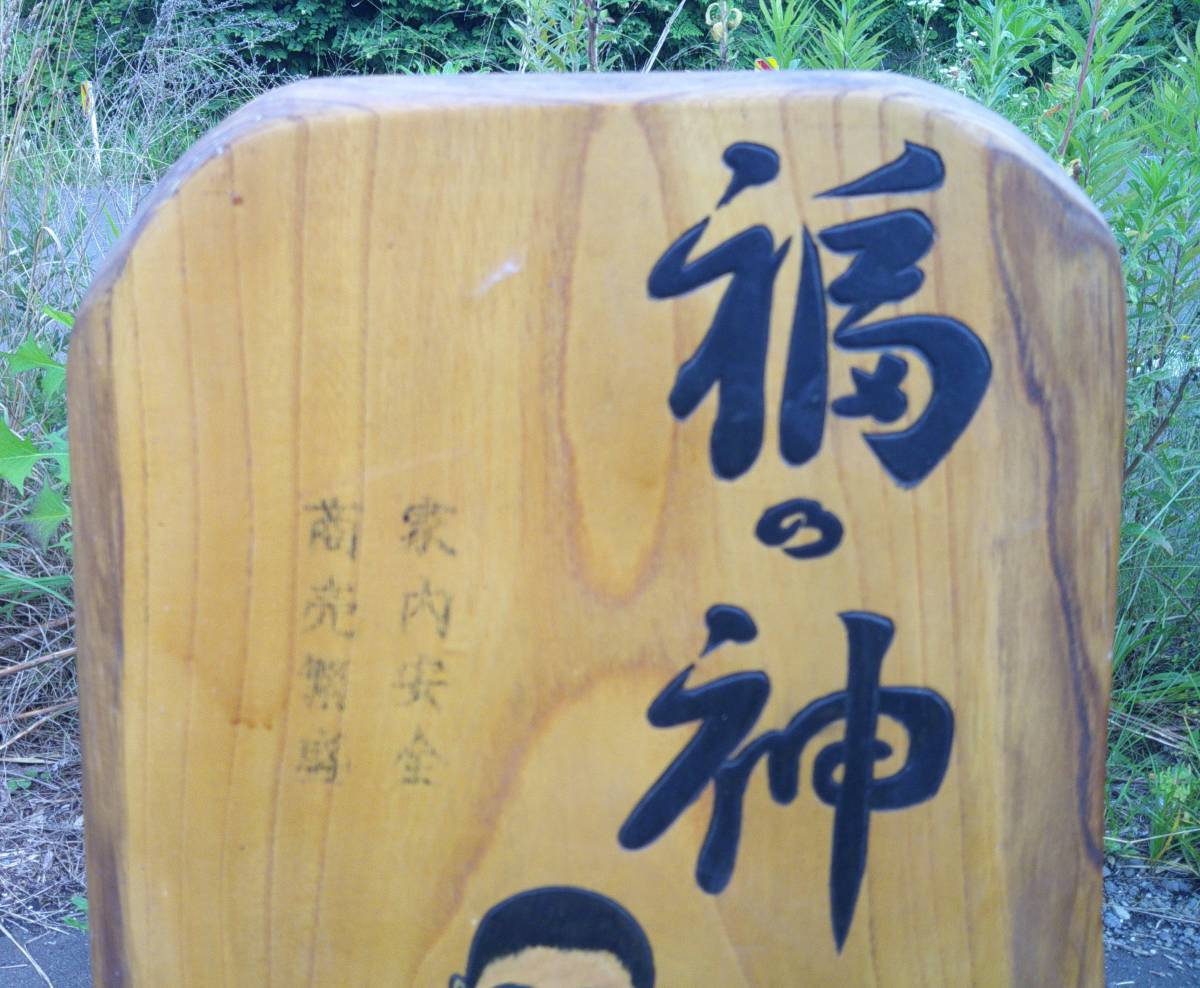 福の神
家内安全
商売繁盛